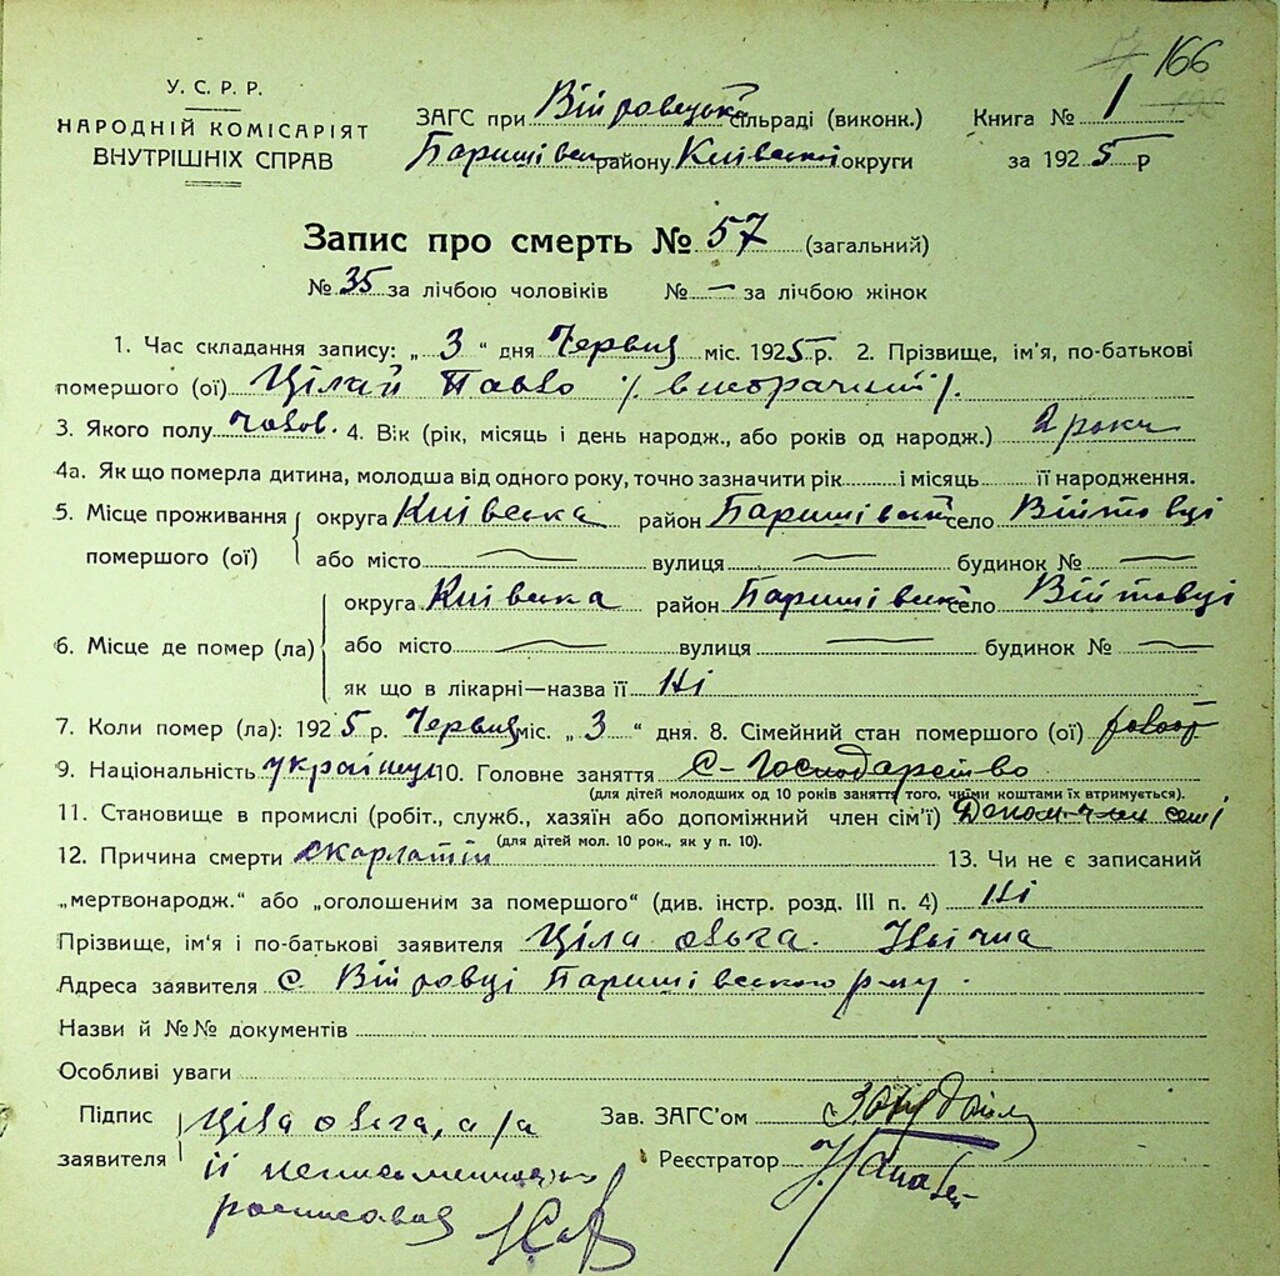 166
У. С. Р. Р.
НАРОДНІЙ КОМІСАРІЯТ
ВНУТРІШНІХ СПРАВ
ЗАГС при сільраді (виконк.) Книга № 1
Баришівськ району Київської округи за 1925 р
Запис про смерть № 57 (загальний)
№ 35 за лічбою чоловіків № — за лічбою жінок
1. Час складання запису: „ 3 “ дня Червця міс. 1925 р. 2. Прізвище, ім'я, по-батькові
помершого (ої) Цілай Павло
3. Якого полу чолов. 4. Вік (рік, місяць і день народж., або років од народж.) 2 роки
4а. Як що померла дитина, молодша від одного року, точно зазначити рік і місяць її народження.
5. Місце проживання округа Київська район Баришівськ село Війтовці
помершого (ої) або місто — вулиця — будинок № —
округа Київська район Баришівськ село Війтовці
6. Місце де помер (ла) або місто — вулиця — будинок № —
як що в лікарні—назва її Ні
7. Коли помер (ла): 1925 р. Червця міс. „ 3 “ дня. 8. Сімейний стан помершого (ої)
9. Національність українец 10. Головне заняття С-Господарство
(для дітей молодших од 10 років заняття того, чиїми коштами їх втримується).
11. Становище в промислі (робіт., служб., хазяїн або допоміжний член сім'ї) Допом. член семї
(для дітей мол. 10 рок., як у п. 10).
12. Причина смерти скарлатін 13. Чи не є записаний
„мертвонародж.“ або „оголошеним за помершого“ (див. інстр. розд. III п. 4) Ні
Прізвище, ім'я і по-батькові заявителя Ціла Ольга.
Адреса заявителя с. Війтовці Баришівського р-ну
Назви й №№ документів
Особливі уваги
Підпис Ціла Ольга, а за Зав. ЗАГС'ом
заявителя її неписьменную Реєстратор
росписався